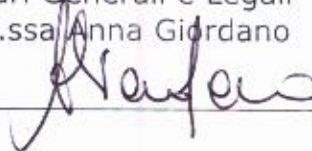 ari Generali e Legali
.ssa Anna Giordano